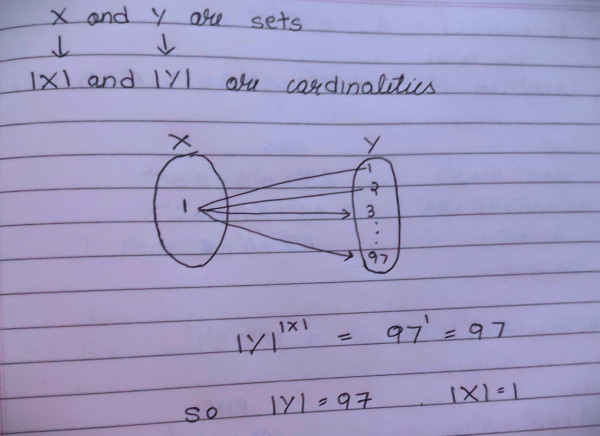 X and Y are sets
↓ ↓
|X| and |Y| are cardinalities
X Y
1
1
2
3
⋮
97
|Y|^|X| = 97^1 = 97
so |Y| = 97 . |X| = 1